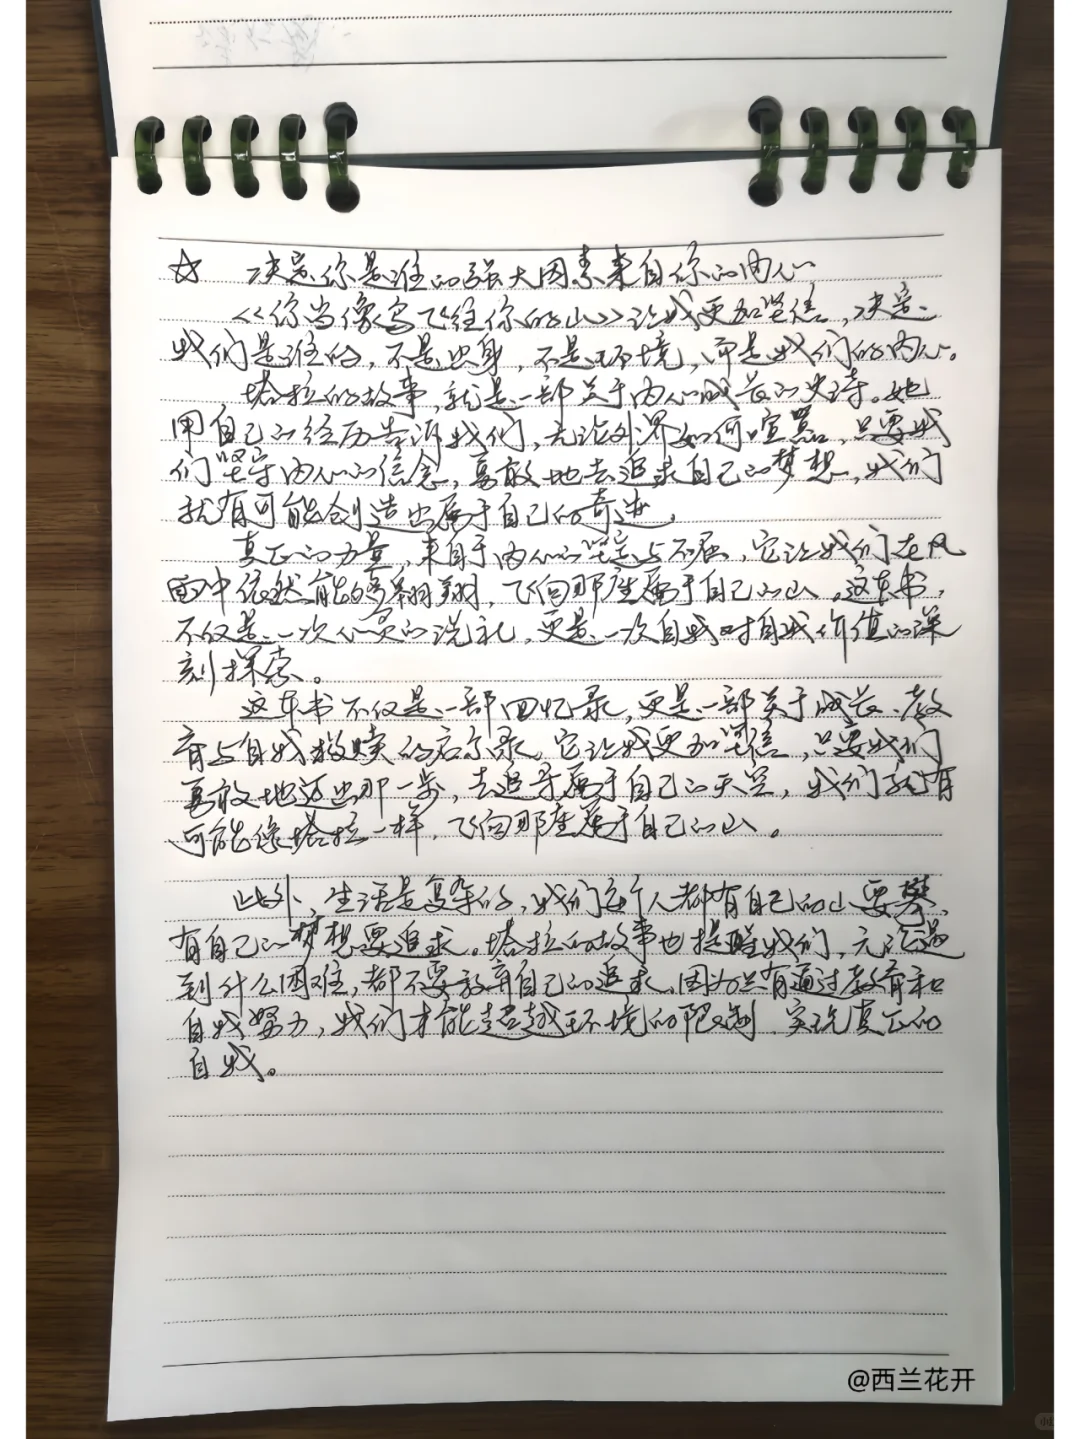 ☆ 决定你是谁的强大因素来自你的内心
《你当像鸟飞往你的山》让我更加坚信,决定
我们是谁的,不是出身,不是环境,而是我们的内心。
塔拉的故事,就是一部关于内心成长的史诗。她
用自己的经历告诉我们,无论外界如何喧嚣,只要我
们坚守内心的信念,勇敢地去追求自己的梦想,我们
就有可能创造出属于自己的奇迹。
真正的力量,来自于内心的坚定与不屈,它让我们在风
雨中依然能够翱翔,飞向那座属于自己的山。这本书,
不仅是一次心灵的洗礼,更是一次自我对自我价值的深
刻探索。
这本书不仅是一部回忆录,更是一部关于成长、教
育与自我救赎的启示录。它让我更加坚信,只要我们
勇敢地迈出那一步,去追寻属于自己的天空,我们就有
可能像塔拉一样,飞向那座属于自己的山。
此外,生活是复杂的,我们每个人都有自己的山要攀,
有自己的梦想要追求。塔拉的故事也提醒我们,无论遇
到什么困难,都不要放弃自己的追求,因为只有通过教育和
自我努力,我们才能超越环境的限制,实现真正的
自我。
@西兰花开